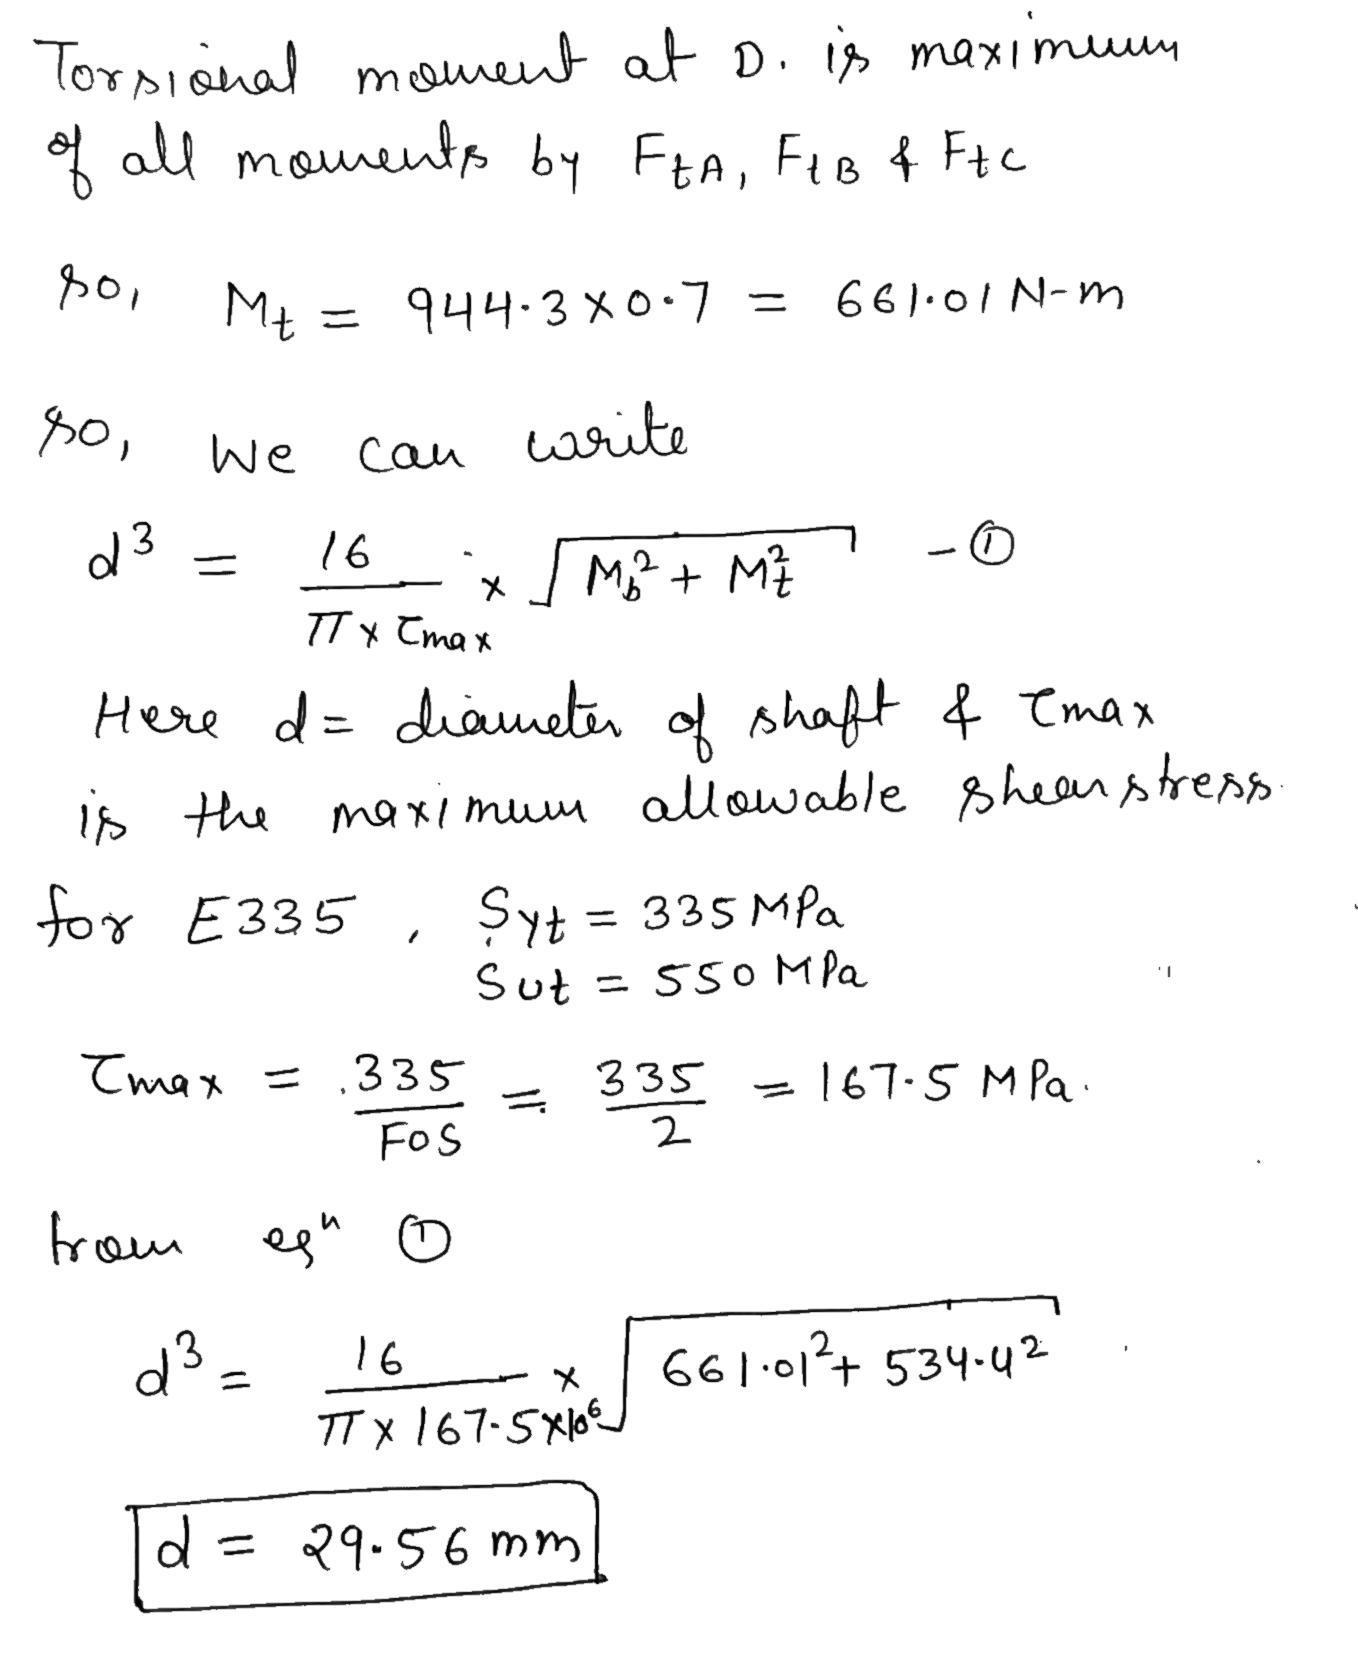 Torsional moment at D. is maximum
of all moments by FtA, FtB & Ftc
so, Mt = 944.3 x 0.7 = 661.01 N-m
so, we can write
d³ = 16 / (π x τmax) x √(Mb² + Mt²) - ①
Here d = diameter of shaft & τmax
is the maximum allowable shear stress.
for E335, Syt = 335 MPa
Sut = 550 MPa
τmax = 335/FOS = 335/2 = 167.5 MPa.
from eqⁿ ①
d³ = 16 / (π x 167.5 x 10⁶) x √(661.01² + 534.4²)
d = 29.56 mm